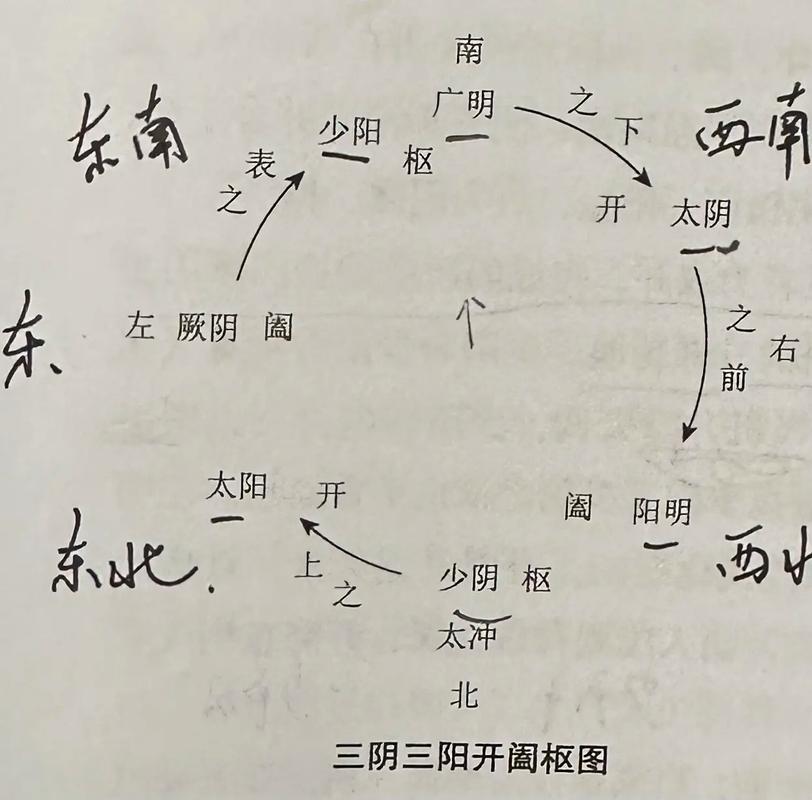 南
东南
少阳 枢
广明
之
下
西南
表
之
开 太阴
东
左 厥阴 阖
个
之
前
右
太阳 开
阖 阳明
东北
上
之
少阴 枢
西北
太冲
北
三阴三阳开阖枢图